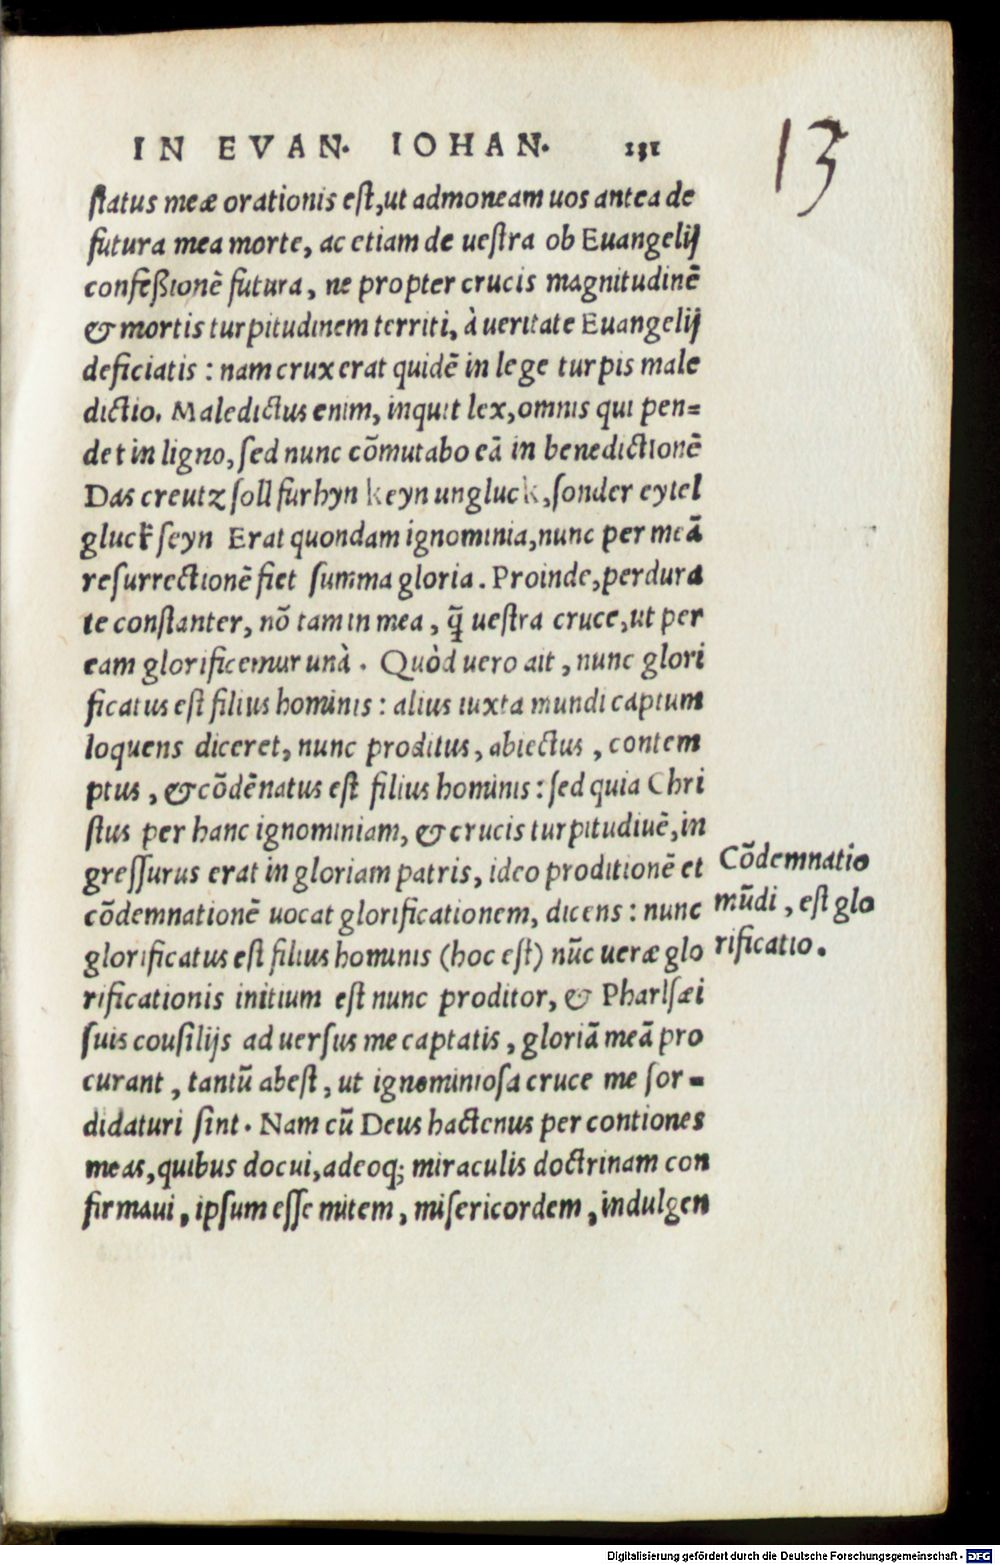 IN EVAN. IOHAN. 131
13
status meæ orationis est, ut admoneam uos antea de
futura mea morte, ac etiam de uestra ob Euangelij
confeßionē futura, ne propter crucis magnitudinē
& mortis turpitudinem territi, à ueritate Euangelij
deficiatis : nam crux erat quidē in lege turpis male
dictio. Maledictus enim, inquit lex, omnis qui pen=
det in ligno, sed nunc cōmutabo eā in benedictionē
Das creutz soll furhyn keyn ungluck, sonder eytel
gluck seyn Erat quondam ignominia, nunc per meā
resurrectionē fiet summa gloria. Proinde, perdura
te constanter, nō tam in mea, q̃ uestra cruce, ut per
eam glorificemur unà. Quòd uero ait, nunc glori
ficatus est filius hominis : alius iuxta mundi captum
loquens diceret, nunc proditus, abiectus, contem
ptus, & cōdēnatus est filius hominis : sed quia Chri
stus per hanc ignominiam, & crucis turpitudiuē, in
gressurus erat in gloriam patris, ideo proditionē et
cōdemnationē uocat glorificationem, dicens : nunc
glorificatus est filius hominis (hoc est) nūc ueræ glo
rificationis initium est nunc proditor, & Pharisæi
suis cousilijs aduersus me captatis, gloriā meā pro
curant, tantū abest, ut ignominiosa cruce me sor=
didaturi sint. Nam cū Deus hactenus per contiones
meas, quibus docui, adeoq; miraculis doctrinam con
firmaui, ipsum esse mitem, misericordem, indulgen
Cōdemnatio
mūdi, est glo
rificatio.
Digitalisierung gefördert durch die Deutsche Forschungsgemeinschaft - DFG